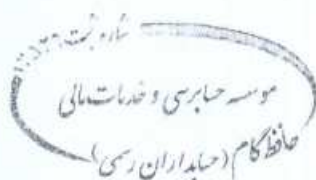 شماره ثبت ۱۳۱۲۹
موسسه حسابرسی و خدمات مالی
حافظ گام (حسابداران رسمی)